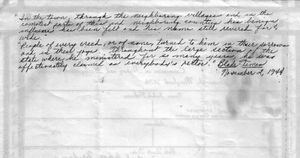 In the town, through the neighboring villages and in the
remotest parts of this and neighboring country his benign
influence has been felt and his name still revered far &
wide.
"People of every creed, or of none, turned to him in their sorrows
and in their joys. Throughout the large section of the
state where he ministered for so many years, he was
affectionately claimed as everybody's rector."
November 2, 1944